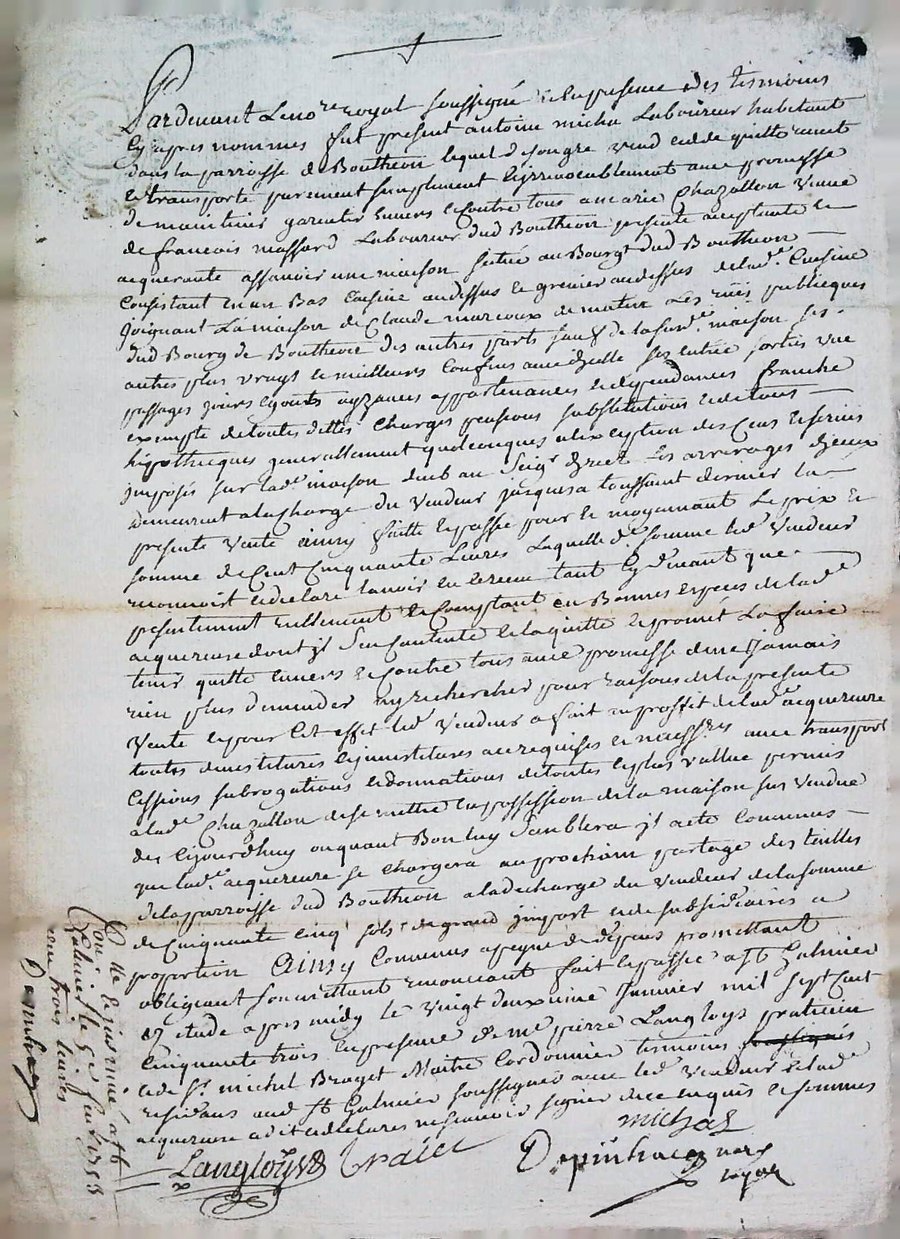 Pardevant Leno.re royal soussigné Et en presence des tesmoins
Cy apres nommes fut present antoine micha Laboureur habitant
dans la parroisse de Boutheon lequel de son gre vend cedde quitte remet
Et transporte purement simplement Et irrevocablement avec promesse
de maintenir garentir Envers Et contre tous a marie Chazallon veuve
de francois massard Laboureur dud Boutheon presente acceptante Et
acquerante assavoir une maison scituée au Bourg dud Boutheon
Consistant En un Bas Cuisine audessus Et grenier audessus de lad.e Cuisine
Joignant La maison de Claude marcoux de matin Les rües publiques
dud Bourg de Boutheon des autres parts sauf de lasusd.e maison ses
autres plus vrays Et meilleurs Confins avec icelle ses entrée sorties vüe
passages jours Egouts ayzances appartenances Et dependances franche
exempte de toutes dettes Charges pensions substitutions Et de tous
hipotheques generallement quelconques a l'exception des Cens Et servis
imposés sur lad.e maison deub au Seig.r direct Les arrerages diceux
demeurent a la charge du Vendeur jusques a toussaint dernier la
presente vente ainsy faitte Et passée pour Et moyennant Le prix Et
somme de Cent Cinquante Livres Laquelle d.e somme led.t Vendeur
reconnoist Et declare lavoir Eu Et receu tant Cy devant que
presentement reellement Et Comptant En Bonnes Espèces de lad.e
acquereuse dont jl s'en Contente Et la quitte Et promet La faire
tenir quitte Envers Et Contre tous avec promesse de ne jamais
rien plus demander ny rechercher pour raison de la presente
vente Et pour Cet effet led.t Vendeur a fait au proffit de lad.e acquereure
toutes devestitures Et jnvestitures a ce requises Et necess.res avec transport
Cessions subrogations Et donnations de toutes Et plus vallue permis
a lad.e Chazallon de se mettre En possession de la maison sus vendue
des Cejourdhuy ou quant Bon luy Semblera jl a eté Convenus
que lad.e acquereure se Chargera au prochain partage des tailles
de la parroisse dud Boutheon a la decharge du Vendeur de la somme
de Cinquante Cinq sols de grand jmpost Et de subsidiaires a
proportion Ainsy Convenus a peyne de depens promettant
obligeant soumettant renonceant fait Et passé a st Galmier
Et étude apres midy le vingt deuxieme Janvier mil sept Cent
Cinquante trois En presence de me pierre Langloys praticien
Et de s.r michel Brayet Maitre Cordonnier temoins
residans aud st Galmier soussignés avec led.t Vendeur Et lad.e
acquereure a dit Et declaré ne scavoir signer de ce Enquis Et sommés
michas
Langloys Braiet Depinhac
royal
Con.le Et jnsinué a st
Galmier le 5.e fev.r 1753
receu trois livres